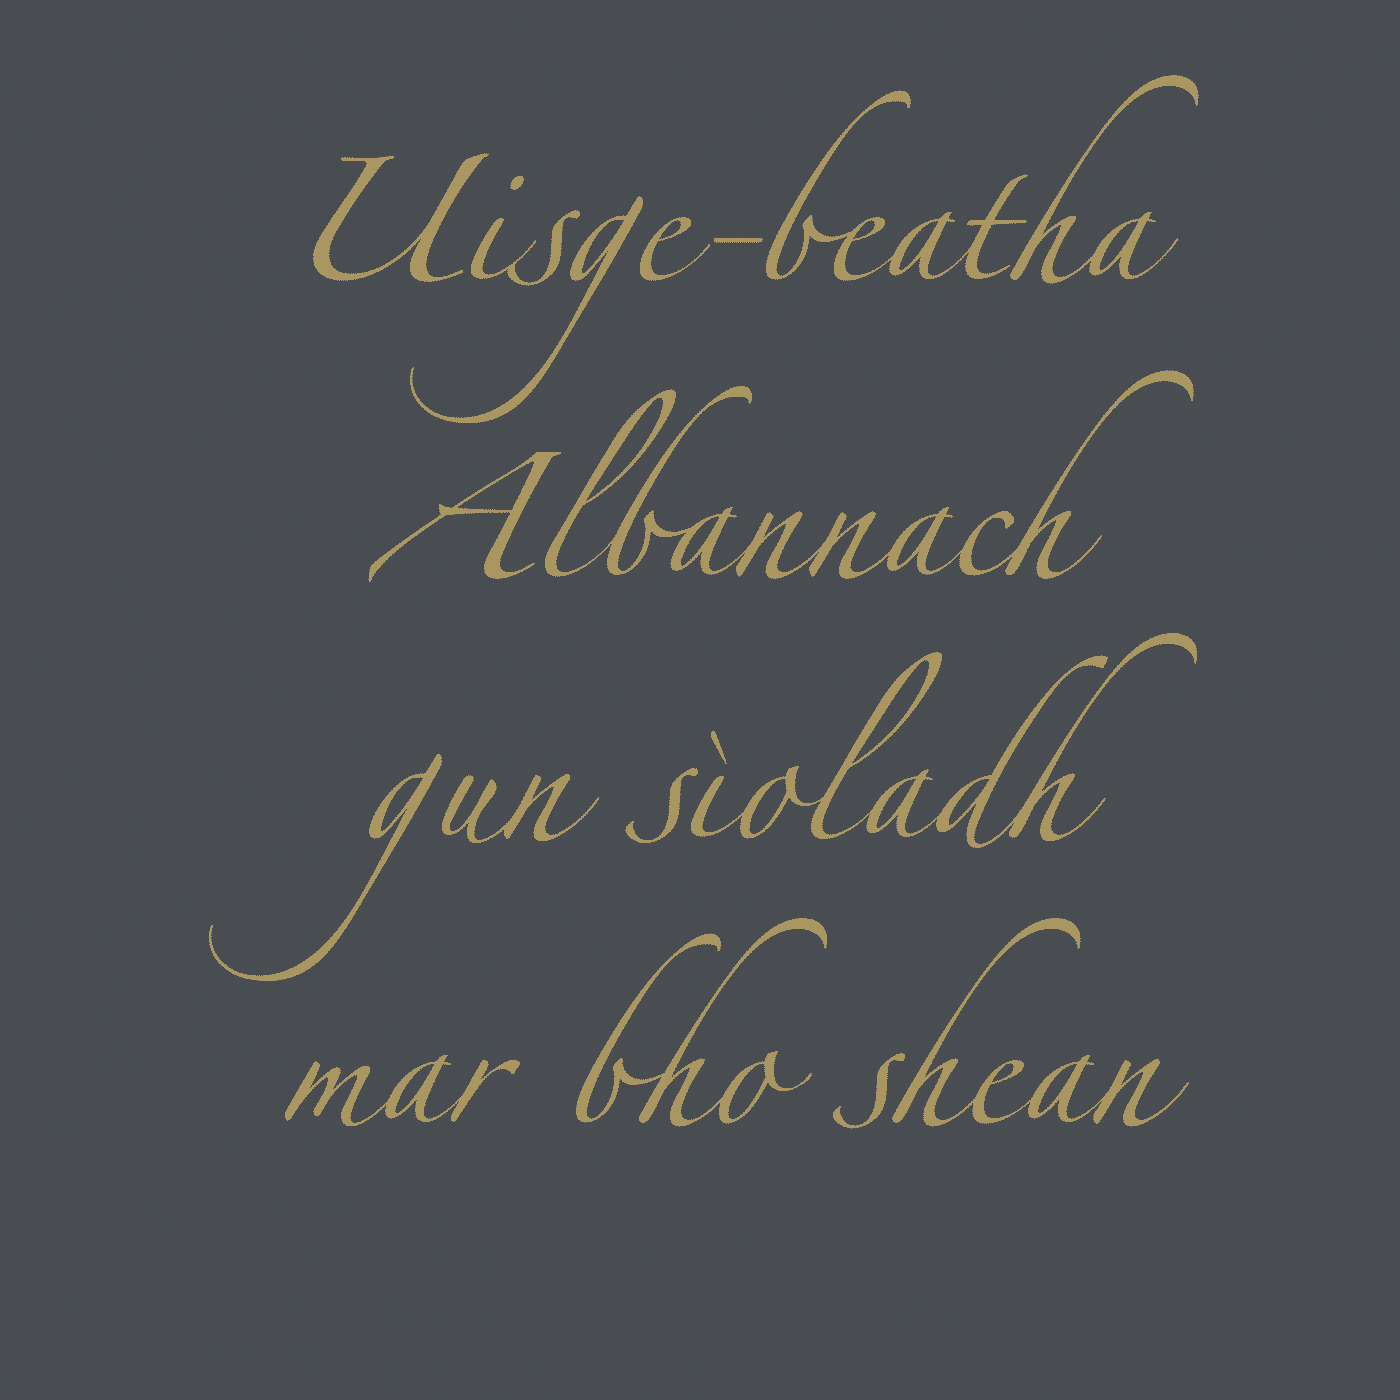 Uisge-beatha
Albannach
gun sìoladh
mar bho shean